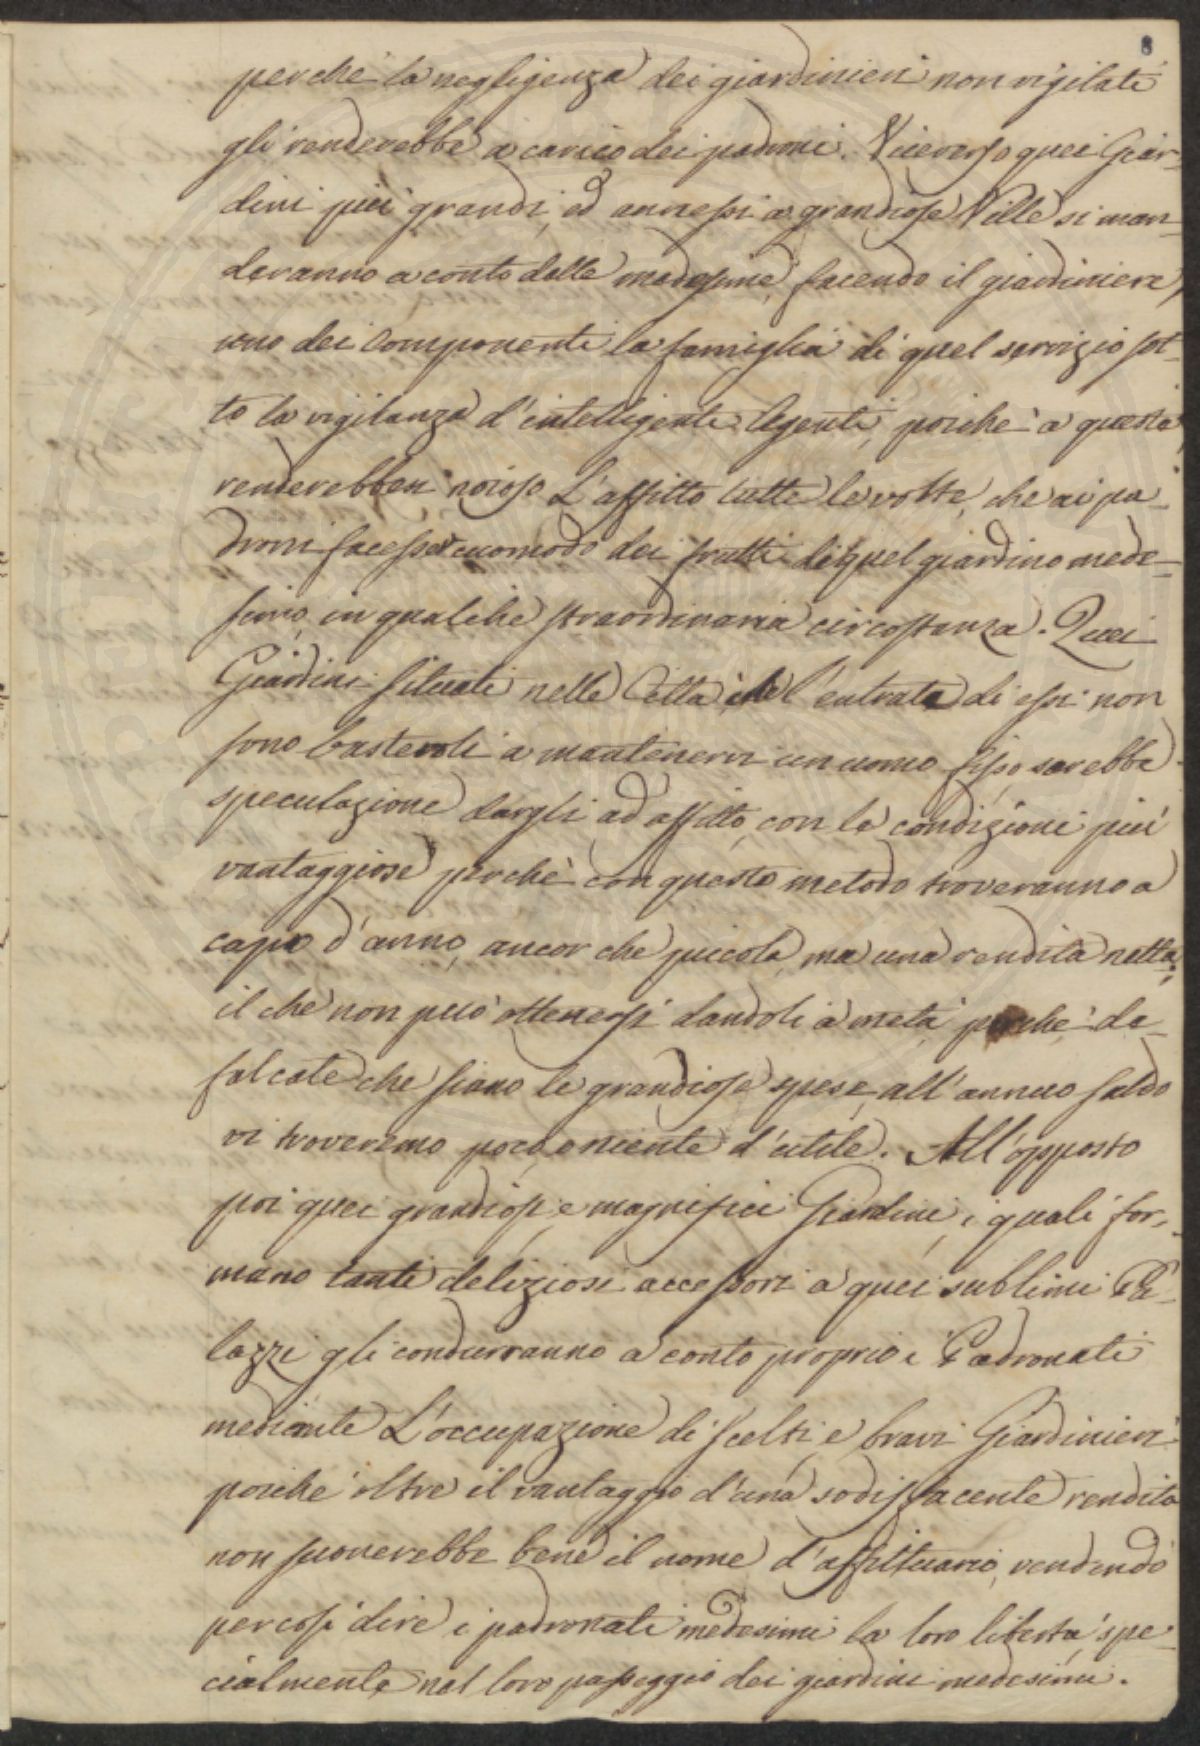 8
perche la negligenza dei giardinieri non vigilati
gli renderebbe a carico dei padroni. Viceverso quei Giar-
dini più grandi, ed annessi a grandiose Ville si man-
deranno a conto delle medesime, facendo il giardiniere,
uno dei componenti la famiglia di quel servizio sot-
to la vigilanza d'intelligenti Agenti, poiche a questa
renderebbesi noioso L'affitto tutte le volte, che ai pa-
droni facesse comodo dei frutti di quel giardino mede-
simo, in qualche straordinaria circostanza. Quei
Giardini situati nelle Città che l'entrata di essi non
sono bastevoli a mantenervi un uomo fisso sarebbe
speculazione dargli ad affitto con le condizioni più
vantaggiose perchè con questo metodo troveranno a
capo d'anno, ancor che piccola, ma una rendita netta;
il che non può ottenersi dandoli à metà, perche de-
falcate che siano le grandiose spese, all'annuo saldo
vi troveremo poco, o niente d'utile. All'opposto
poi quei grandiosi, e magnifici Giardini, i quali for-
mano tanti deliziosi accessori a quei sublimi Pa-
lazzi gli condurranno a conto proprio i Padronati
mediante L'occupazione di scelti, e bravi Giardinieri
poiche oltre il vantaggio d'una sodisfacente rendita
non suonerebbe bene il nome d'affittuario, vendendo
per così dire i padronati medesimi la loro libertà spe-
cialmente nel loro passeggio dei giardini medesimi.